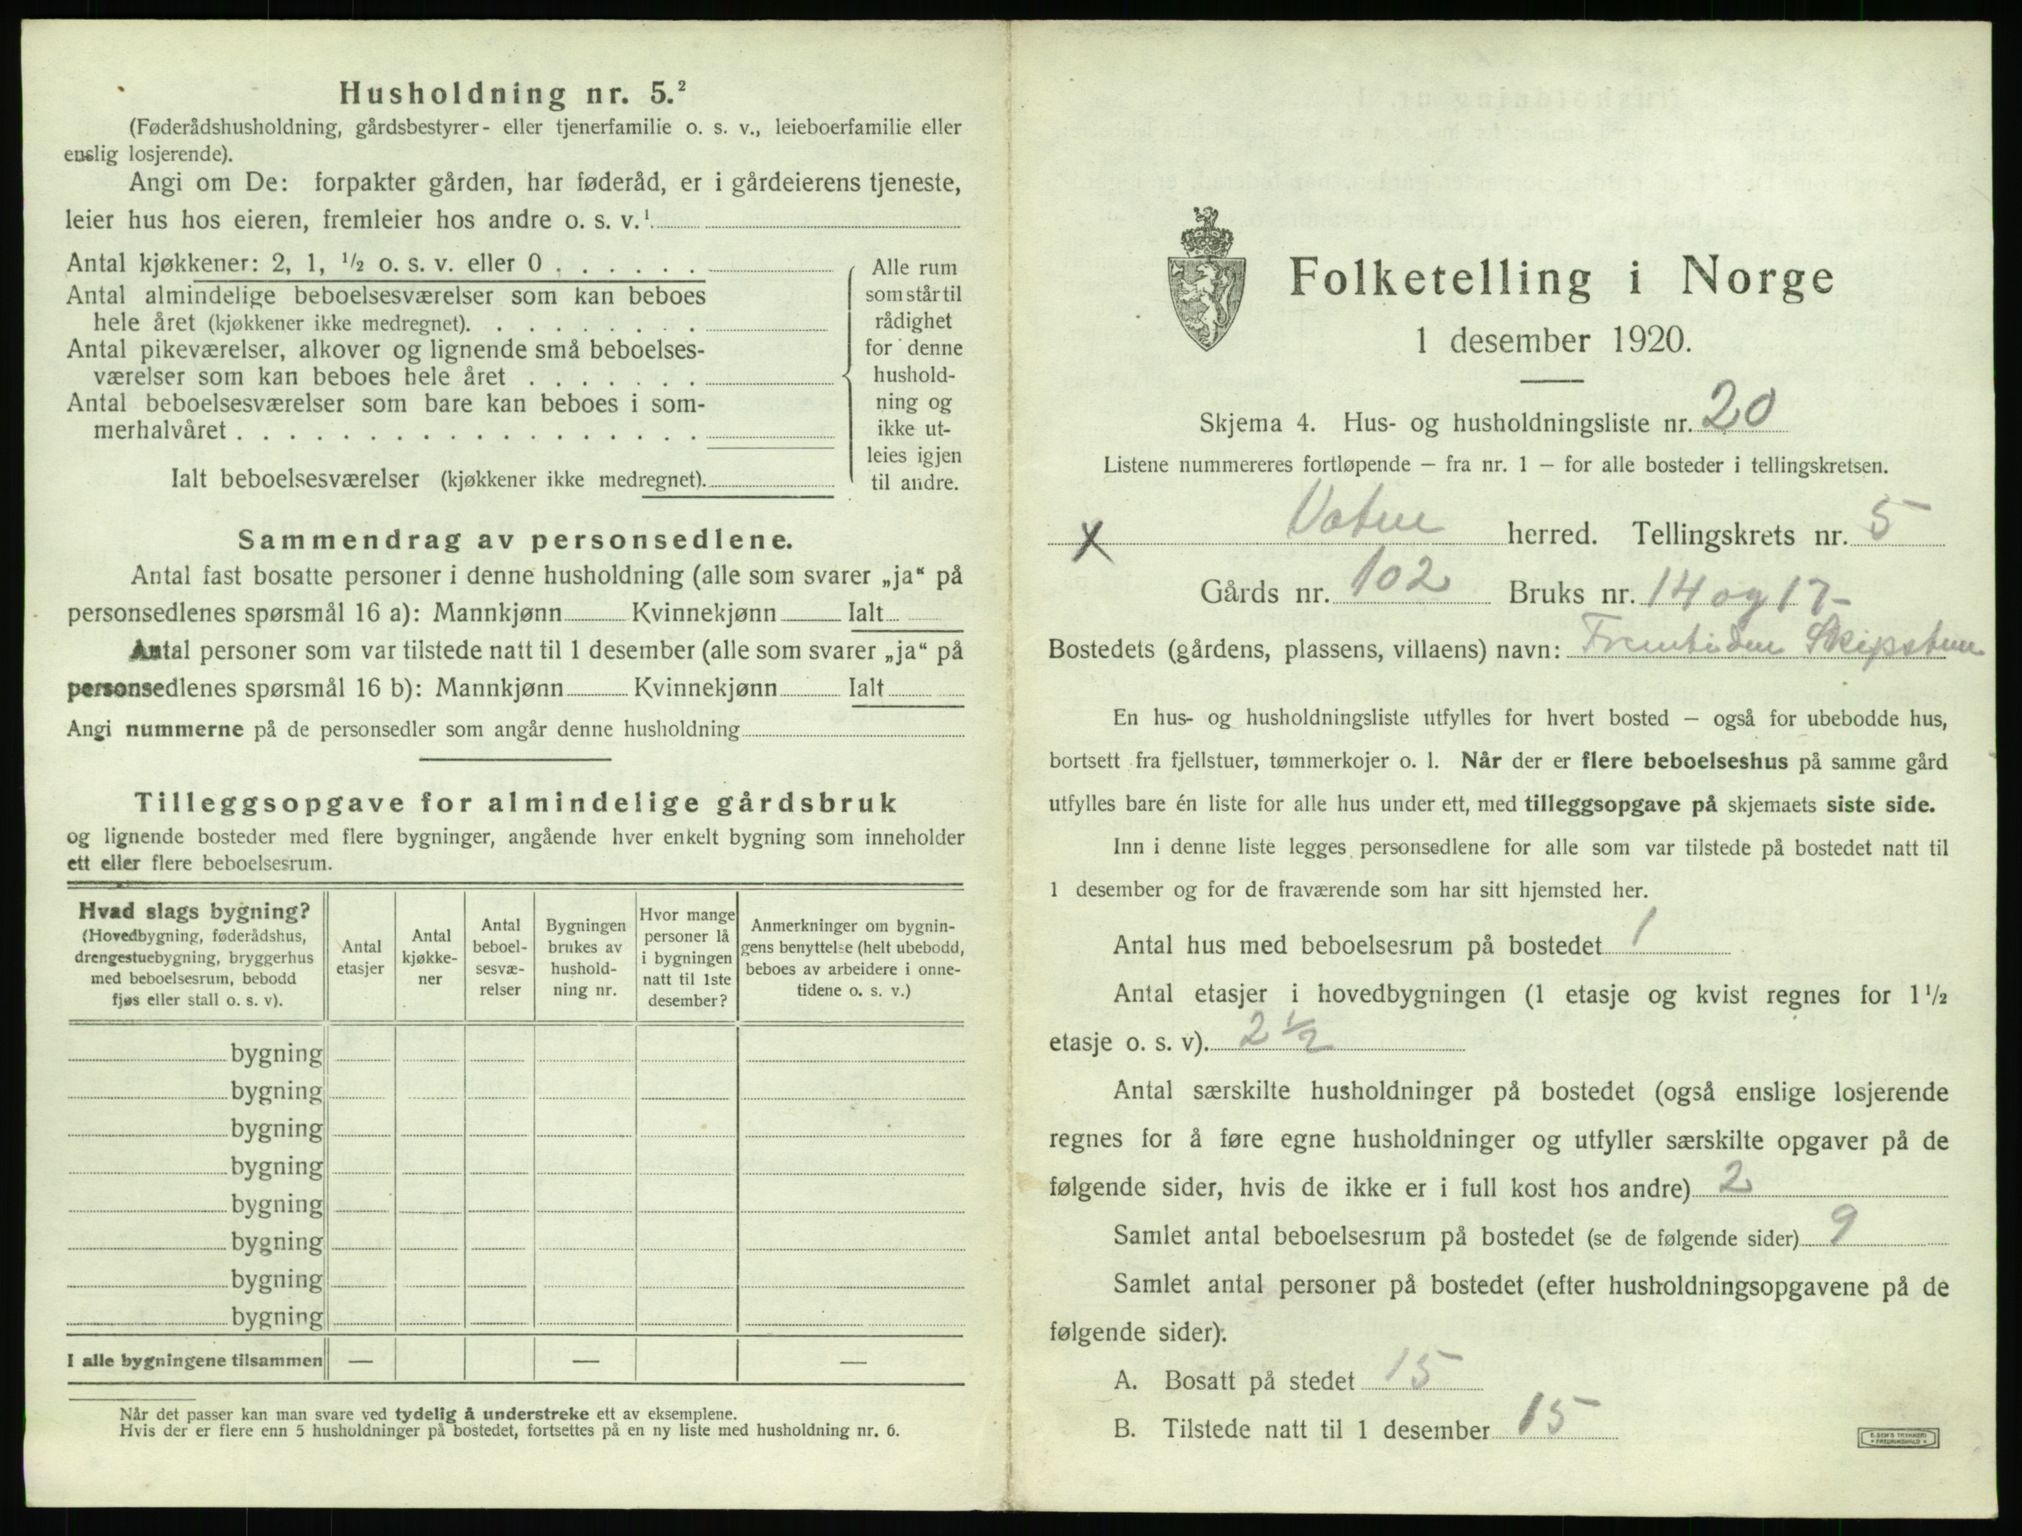 Husholdning nr. 5.²
(Føderådshusholdning, gårdsbestyrer- eller tjenerfamilie o. s. v., leieboerfamilie eller
enslig losjerende).
Angi om De: forpakter gården, har føderåd, er i gårdeierens tjeneste,
leier hus hos eieren, fremleier hos andre o. s. v.¹
Antal kjøkkener: 2, 1, ½ o. s. v. eller 0 . . . . . .
Antal almindelige beboelsesværelser som kan beboes
hele året (kjøkkener ikke medregnet). . . . . . . . .
Antal pikeværelser, alkover og lignende små beboelses-
værelser som kan beboes hele året . . . . . . .
Antal beboelsesværelser som bare kan beboes i som-
merhalvåret . . . . . . . . . . . . . . . . . .
Ialt beboelsesværelser (kjøkkener ikke medregnet).
Alle rum
som står til
rådighet
for denne
hushold-
ning og
ikke ut-
leies igjen
til andre.
Sammendrag av personsedlene.
Antal fast bosatte personer i denne husholdning (alle som svarer „ja“ på
personsedlenes spørsmål 16 a): Mannkjønn Kvinnekjønn Ialt
Antal personer som var tilstede natt til 1 desember (alle som svarer „ja“ på
personsedlenes spørsmål 16 b): Mannkjønn Kvinnekjønn Ialt
Angi nummerne på de personsedler som angår denne husholdning
Tilleggsopgave for almindelige gårdsbruk
og lignende bosteder med flere bygninger, angående hver enkelt bygning som inneholder
ett eller flere beboelsesrum.
Hvad slags bygning?
(Hovedbygning, føderådshus,
drengestuebygning, bryggerhus
med beboelsesrum, bebodd
fjøs eller stall o. s. v).
Antal
etasjer
Antal
kjøkke-
ner
Antal
beboel-
sesvæ-
relser
Bygningen
brukes av
hushold-
ning nr.
Hvor mange
personer lå
i bygningen
natt til 1ste
desember?
Anmerkninger om bygnin-
gens benyttelse (helt ubebodd,
beboes av arbeidere i onne-
tidene o. s. v.)
bygning
bygning
bygning
bygning
bygning
bygning
bygning
bygning
I alle bygningene tilsammen — — —
Når det passer kan man svare ved tydelig å understreke ett av eksemplene.
Hvis der er flere enn 5 husholdninger på bostedet, fortsettes på en ny liste med husholdning nr. 6.
Folketelling i Norge
1 desember 1920.
Skjema 4. Hus- og husholdningsliste nr. 20
Listene nummereres fortløpende – fra nr. 1 – for alle bosteder i tellingskretsen.
x Vatne herred. Tellingskrets nr. 5
Gårds nr. 102 Bruks nr. 14 og 17
Bostedets (gårdens, plassens, villaens) navn: Fremtiden Skipstun
En hus- og husholdningsliste utfylles for hvert bosted – også for ubebodde hus,
bortsett fra fjellstuer, tømmerkojer o. l. Når der er flere beboelseshus på samme gård
utfylles bare én liste for alle hus under ett, med tilleggsopgave på skjemaets siste side.
Inn i denne liste legges personsedlene for alle som var tilstede på bostedet natt til
1 desember og for de fraværende som har sitt hjemsted her.
Antal hus med beboelsesrum på bostedet 1
Antal etasjer i hovedbygningen (1 etasje og kvist regnes for 1½
etasje o. s. v). 2 ½
Antal særskilte husholdninger på bostedet (også enslige losjerende
regnes for å føre egne husholdninger og utfyller særskilte opgaver på de
følgende sider, hvis de ikke er i full kost hos andre) 2
Samlet antal beboelsesrum på bostedet (se de følgende sider) 9
Samlet antal personer på bostedet (efter husholdningsopgavene på de
følgende sider).
A. Bosatt på stedet 15
B. Tilstede natt til 1 desember 15